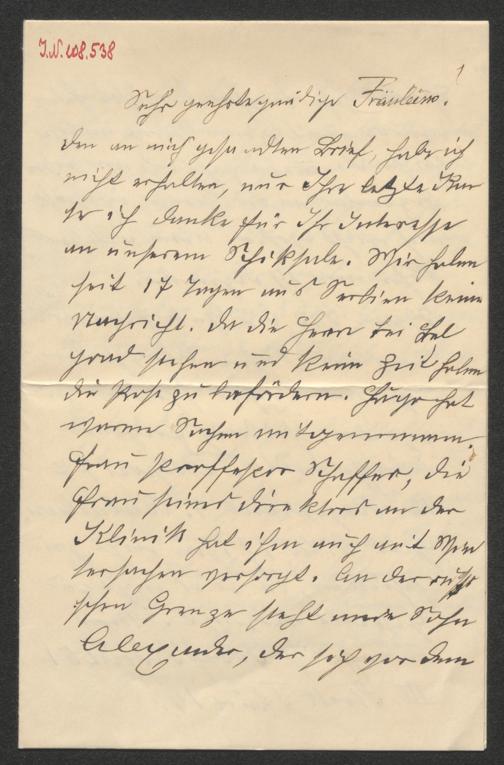 J.N. 108.538
1
Sehr geehrte gnädige Fräulein!
den an mich gesandten Brief, habe ich
nicht erhalten, nur Ihre letzte Kar
te ich danke für Ihr Interesse
an unserem Schiksale. Wir haben
seit 17 Tagen aus Serbien keine
Nachricht. da die Herrn bei Bel
grad stehen und keine Zeit haben
die Post zu befördern. Hugo hat
warme Sachen mitgenommen.
Frau Proffessor Schaffer, die
Frau seines direktors an der
Klinik hat ihm auch mit Win
tersachen versorgt. An der russi
schen Grenze steht mein Sohn
Alexander, der sich vor dem